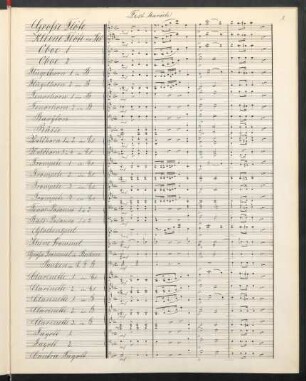 Fest Marsch
Grosse Flöte
Kleine Flöte in Es
Oboe 1
Oboe 2
Flügelhorn 1 in B
Flügelhorn 2 in B
Tenorhorn 1 in B
Tenorhorn 2 in B
Baryton
Bässe
Waldhorn 1 u 2 in Es
Waldhorn 3 u 4 in Es
Trompete 1 in Es
Trompete 2 in Es
Trompete 3 in Es
Trompete 4 in Es
Tenor-Posaune 1 u 2
Bass-Posaune
Glockenspiel
Kleine Trommel
Grosse Trommel u Becken
Clarinette 1 in Es
Clarinette 2 in Es
Clarinette 1 in B
Clarinette 2 in B
Clarinette 3 in B
Fagott 1
Fagott 2
Contra Fagott